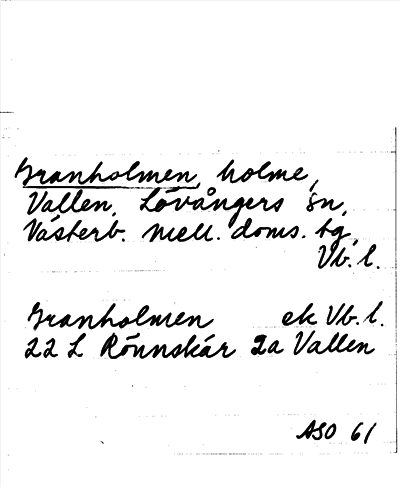 Granholmen, holme,
Vallen, Lövångers sn,
Västerb. mell. doms. tg,
Vb. l.
Granholmen ek Vb. l.
22 L Rönnskär 2a Vallen
ASO 61